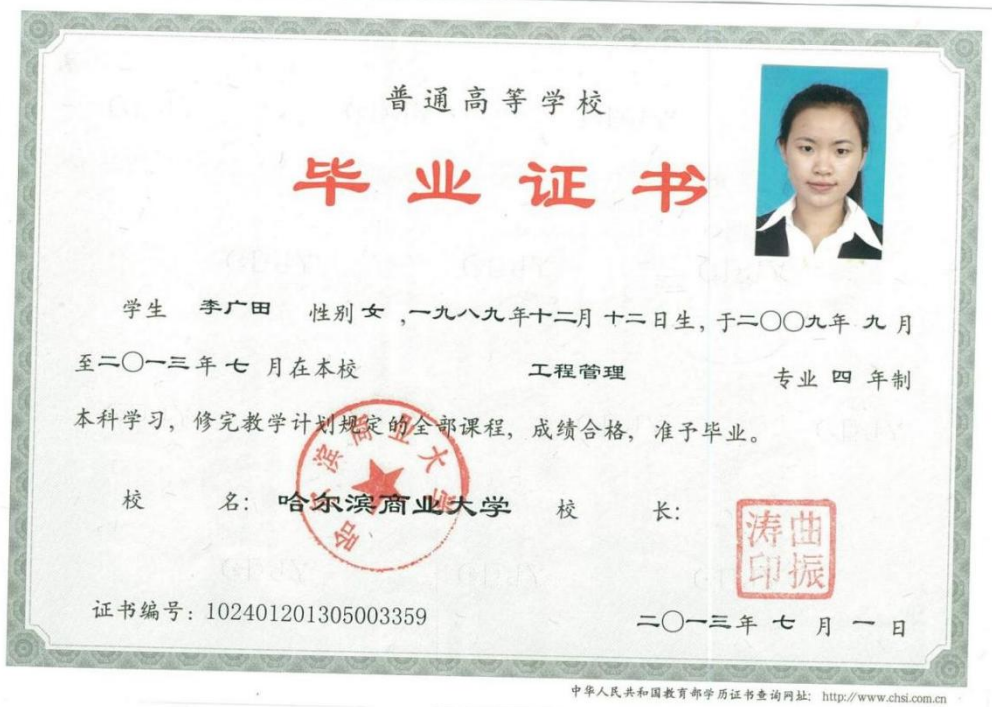 普通高等学校
毕业证书
学生 李广田 性别 女 ,一九八九年十二月 十二日生, 于二〇〇九年 九 月
至二〇一三年 七 月在本校 工程管理 专业 四 年制
本科学习, 修完教学计划规定的全部课程, 成绩合格, 准予毕业。
哈尔滨商业大学
校 名: 哈尔滨商业大学 校 长:
曲振涛印
证书编号: 102401201305003359
二〇一三年 七 月 一 日
中华人民共和国教育部学历证书查询网址: http://www.chsi.com.cn